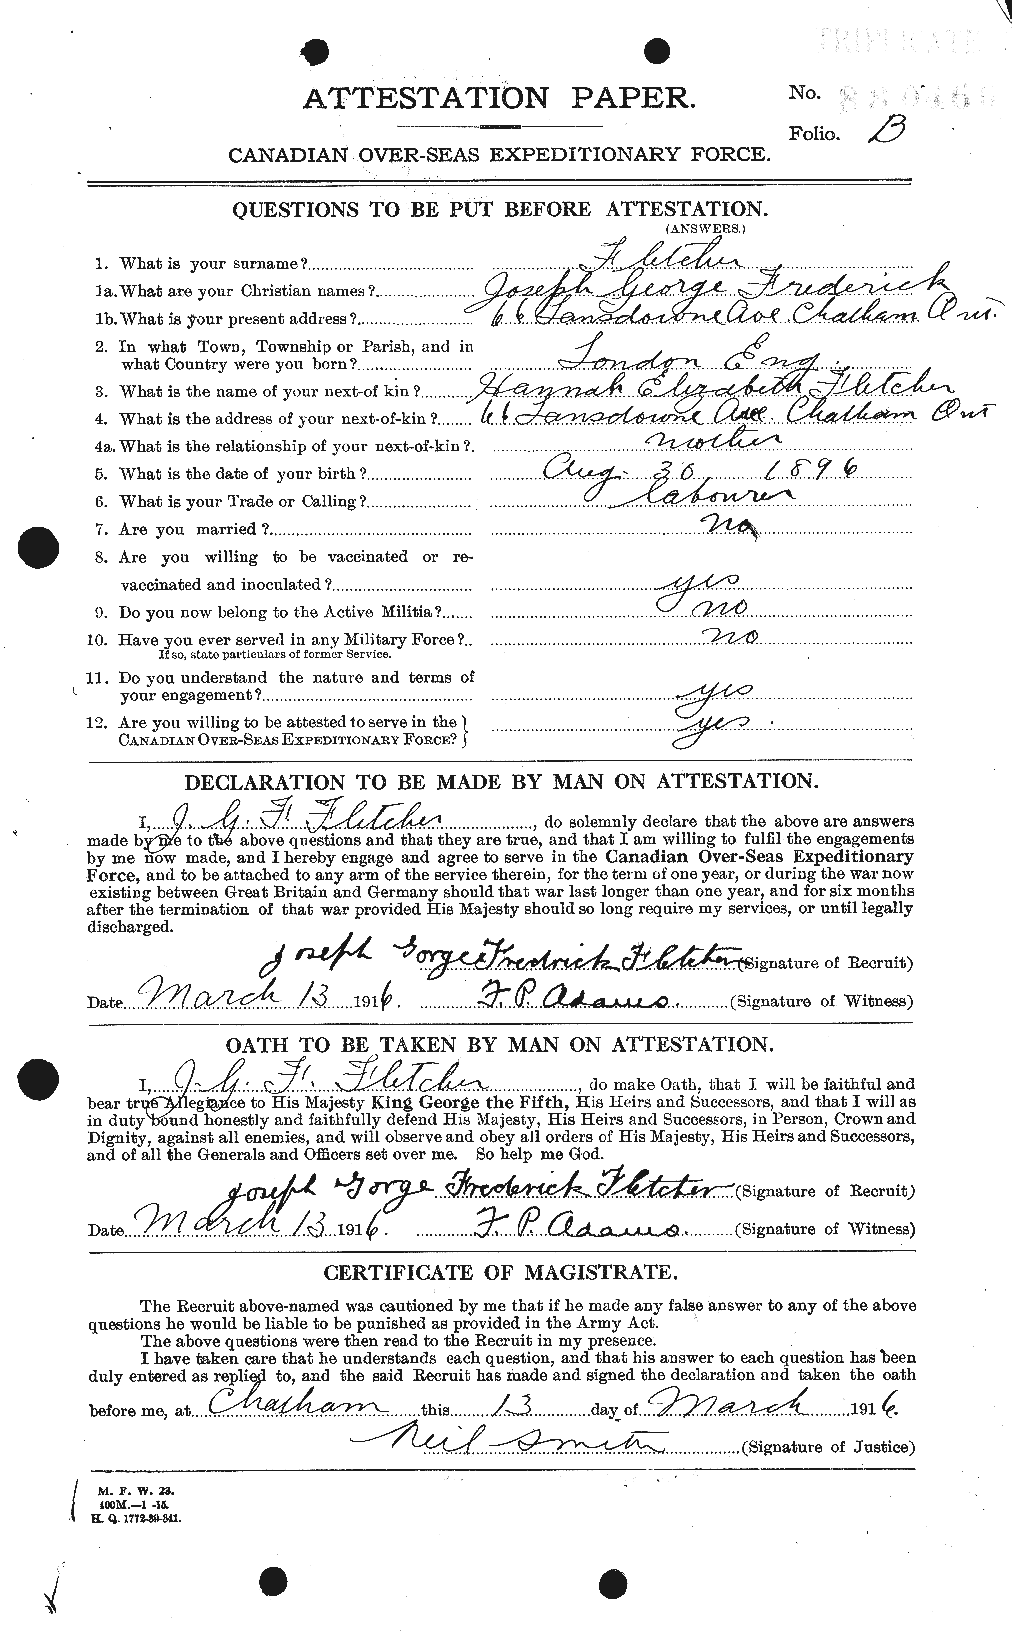 TRIPLICATE
ATTESTATION PAPER.
No.
Folio. B
CANADIAN OVER-SEAS EXPEDITIONARY FORCE.
QUESTIONS TO BE PUT BEFORE ATTESTATION.
(ANSWERS.)
1. What is your surname? Fletcher
1a. What are your Christian names? Joseph George Frederick
1b. What is your present address? 66 Lansdowne Ave. Chatham Ont.
2. In what Town, Township or Parish, and in
what Country were you born? London Eng.
3. What is the name of your next-of kin? Hannah Elizabeth Fletcher
4. What is the address of your next-of-kin? 66 Lansdowne Ave Chatham Ont
4a. What is the relationship of your next-of-kin? mother
5. What is the date of your birth? Aug. 30 1896
6. What is your Trade or Calling? labourer
7. Are you married? no
8. Are you willing to be vaccinated or re-
vaccinated and inoculated? yes
9. Do you now belong to the Active Militia? no
10. Have you ever served in any Military Force? no
If so, state particulars of former Service.
11. Do you understand the nature and terms of
your engagement? yes
12. Are you willing to be attested to serve in the
CANADIAN OVER-SEAS EXPEDITIONARY FORCE? yes.
DECLARATION TO BE MADE BY MAN ON ATTESTATION.
I, J. G. F. Fletcher, do solemnly declare that the above are answers
made by me to the above questions and that they are true, and that I am willing to fulfil the engagements
by me now made, and I hereby engage and agree to serve in the Canadian Over-Seas Expeditionary
Force, and to be attached to any arm of the service therein, for the term of one year, or during the war now
existing between Great Britain and Germany should that war last longer than one year, and for six months
after the termination of that war provided His Majesty should so long require my services, or until legally
discharged.
Joseph Gorge Fredrick Fletcher (Signature of Recruit)
Date March 13 1916. F. P. Adams. (Signature of Witness)
OATH TO BE TAKEN BY MAN ON ATTESTATION.
I, J. G. F. Fletcher, do make Oath, that I will be faithful and
bear true Allegiance to His Majesty King George the Fifth, His Heirs and Successors, and that I will as
in duty bound honestly and faithfully defend His Majesty, His Heirs and Successors, in Person, Crown and
Dignity, against all enemies, and will observe and obey all orders of His Majesty, His Heirs and Successors,
and of all the Generals and Officers set over me. So help me God.
Joseph Gorge Frederick Fletcher (Signature of Recruit)
Date March 13 1916. F. P. Adams. (Signature of Witness)
CERTIFICATE OF MAGISTRATE.
The Recruit above-named was cautioned by me that if he made any false answer to any of the above
questions he would be liable to be punished as provided in the Army Act.
The above questions were then read to the Recruit in my presence.
I have taken care that he understands each question, and that his answer to each question has been
duly entered as replied to, and the said Recruit has made and signed the declaration and taken the oath
before me, at Chatham this 13 day of March 1916.
Neil Smith (Signature of Justice)
M. F. W. 23.
400M.—1-15.
H. Q. 1772-39-841.